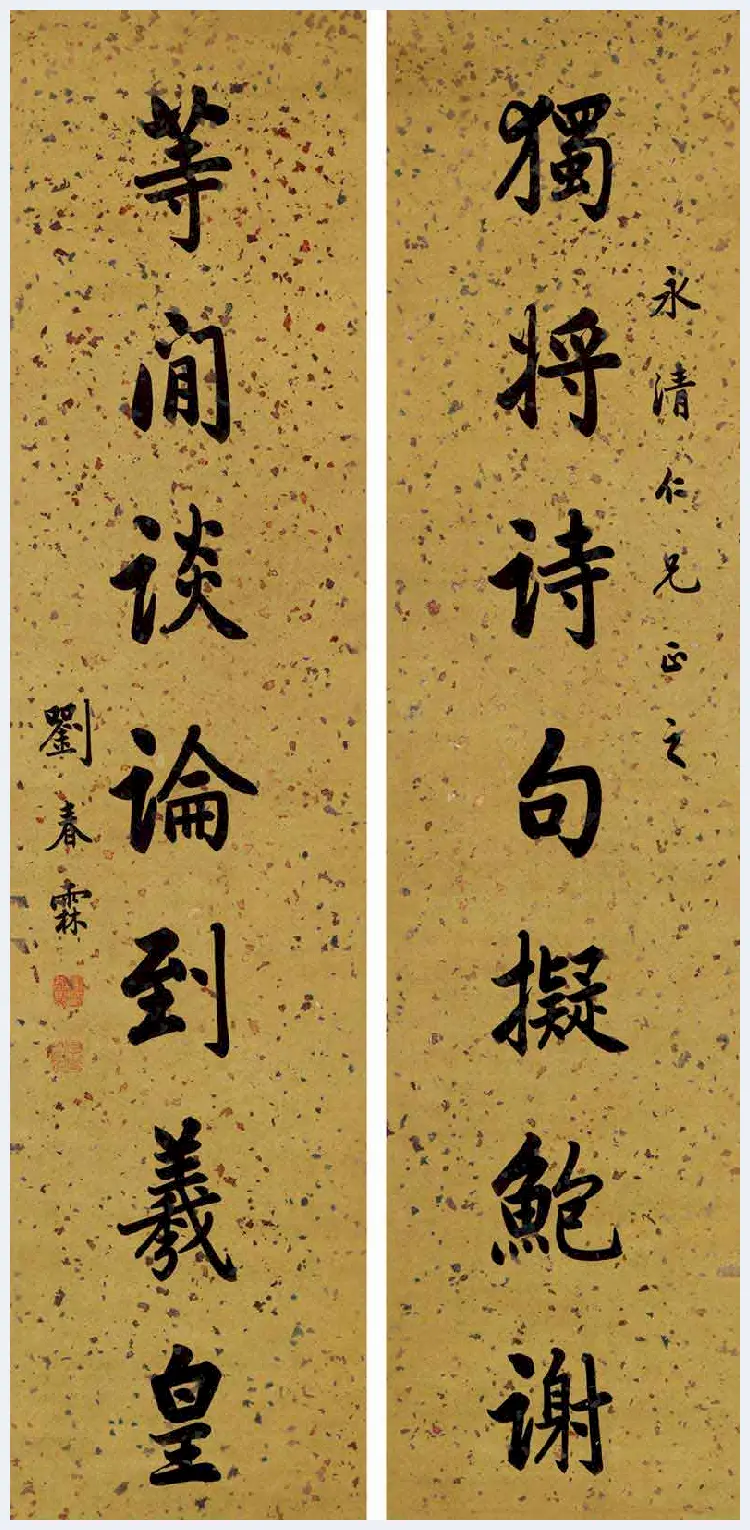 獨將詩句擬鮑謝
永清仁兄正之
等閒談論到羲皇
劉春霖